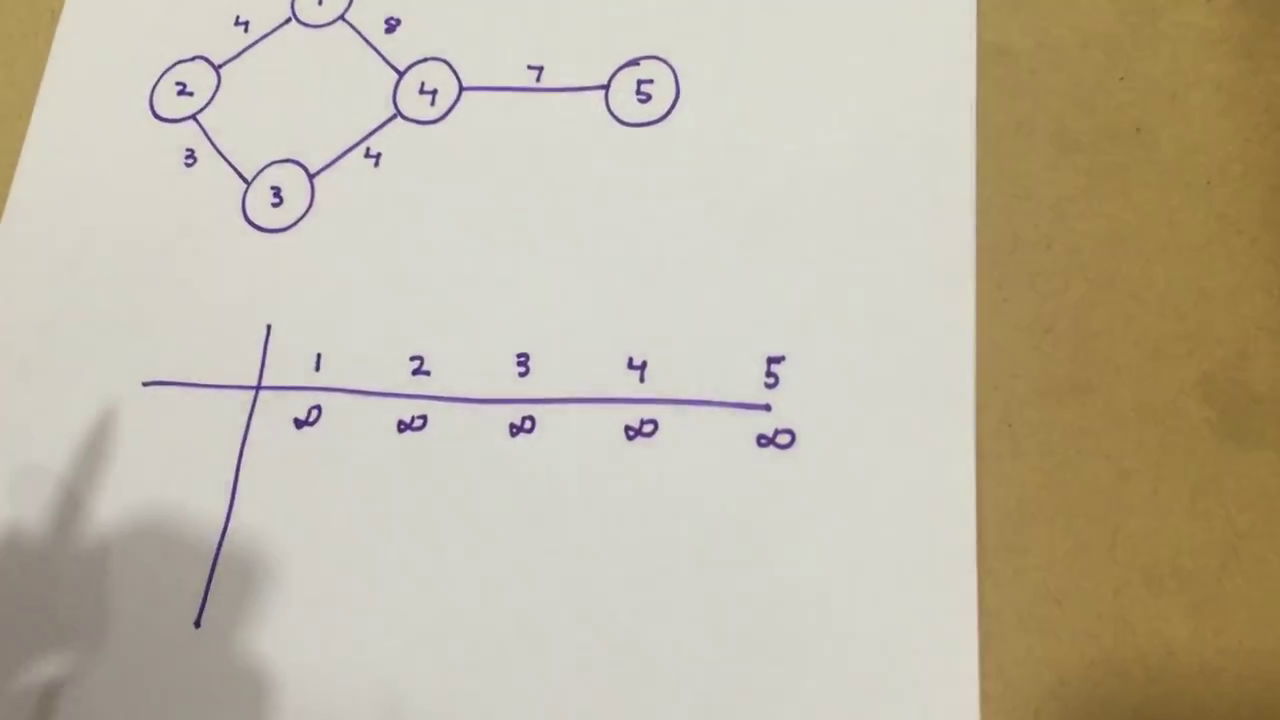 4 8
2 4 7 5
3 4
3
1 2 3 4 5
∞ ∞ ∞ ∞ ∞